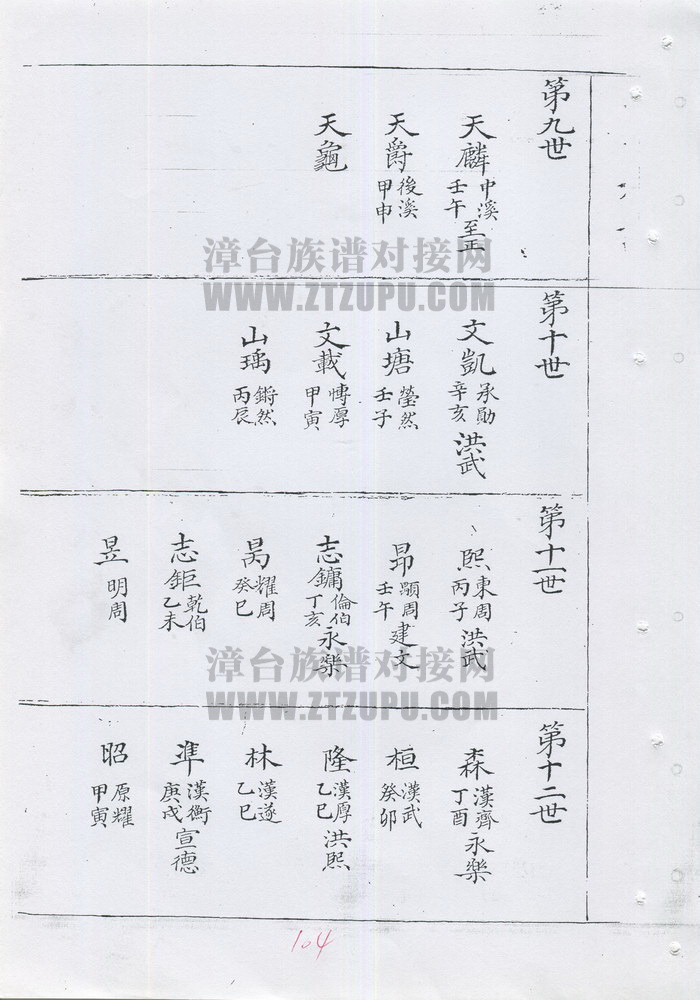 第九世
天麟 中溪 壬午 至正
天爵 後溪 甲申
天龜
漳台族谱对接网
WWW.ZTZUPU.COM
第十世
文凱 承勛 辛亥 洪武
山塘 瑩然 壬子
文載 愽厚 甲寅
山瑀 鏘然 丙辰
第十一世
熙 東周 丙子 洪武
昻 顯周 壬午 建文
志鏞 倫伯 丁亥 永樂
昺 耀周 癸巳
志鉅 乾伯 乙未
昱 明周
漳台族谱对接网
WWW.ZTZUPU.COM
第十二世
森 漢齊 丁酉 永樂
桓 漢武 癸卯
隆 漢厚 乙巳 洪熙
林 漢遂 乙巳
準 漢衡 庚戌 宣德
昭 原耀 甲寅
104